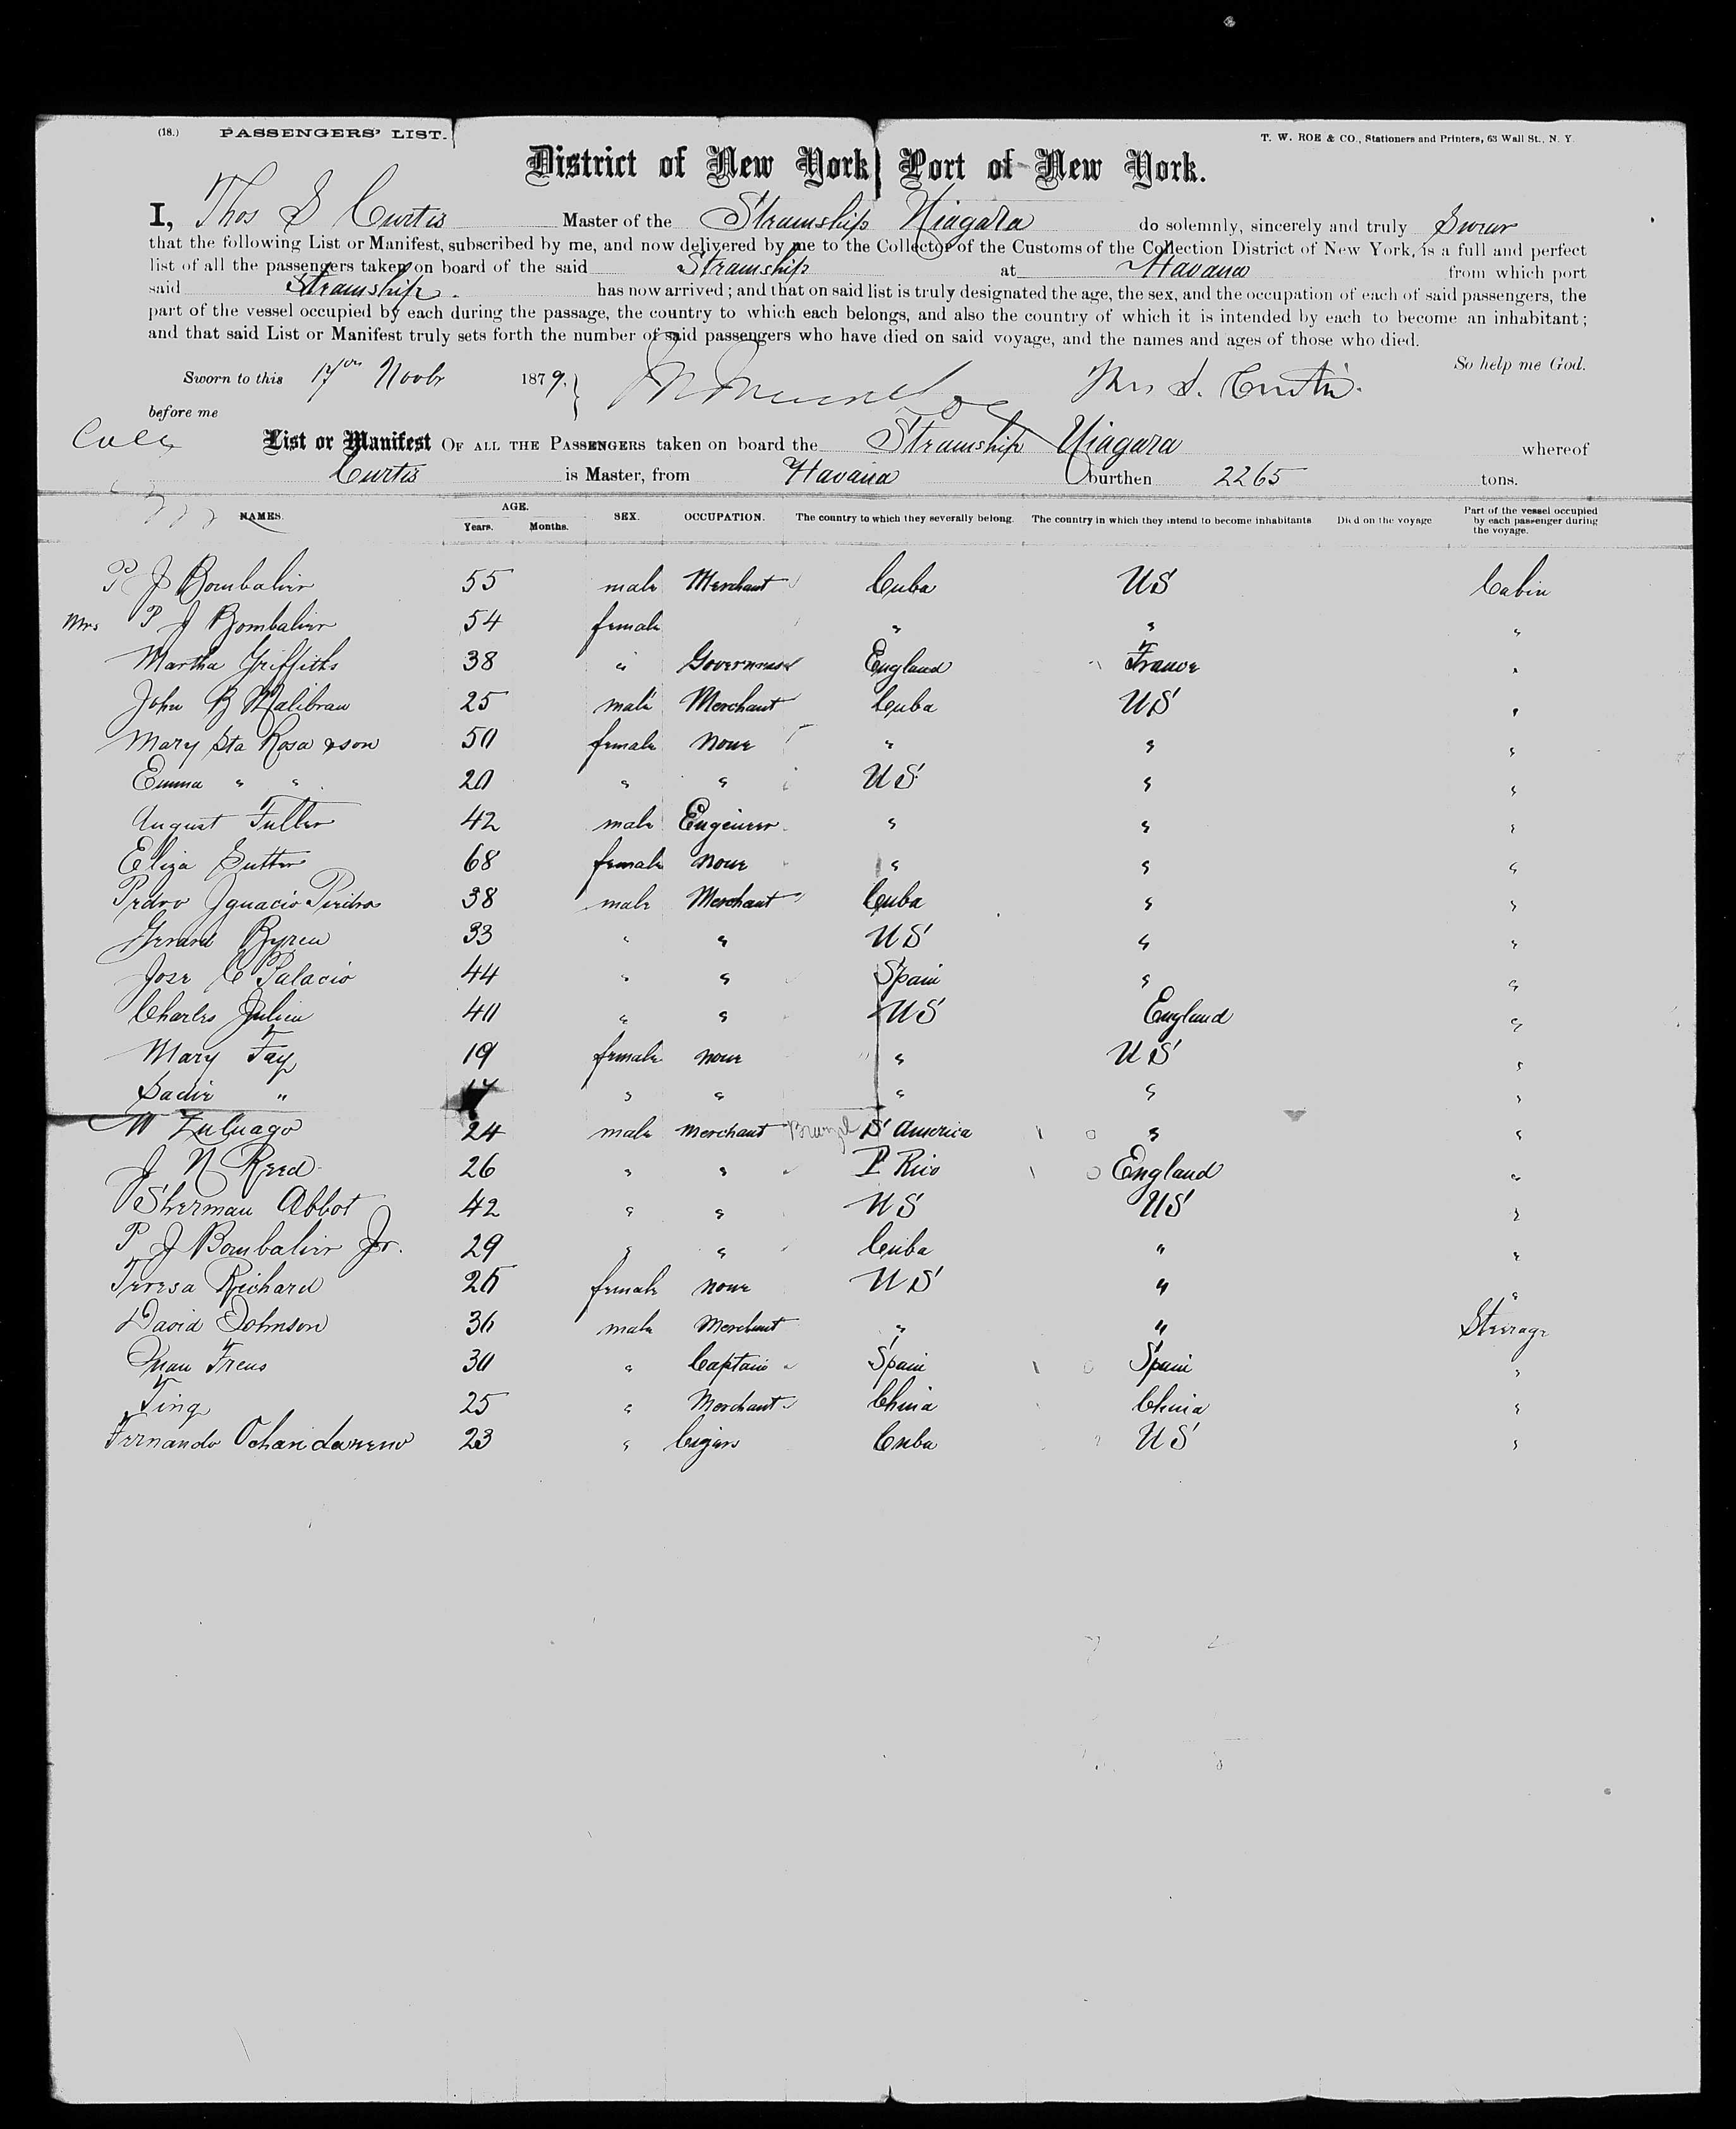 (18.) PASSENGERS' LIST. T. W. ROE & CO., Stationers and Printers, 63 Wall St., N. Y.
District of New York Port of New York.
I, Thos S Curtis Master of the Steamship Niagara do solemnly, sincerely and truly Swear
that the following List or Manifest, subscribed by me, and now delivered by me to the Collector of the Customs of the Collection District of New York, is a full and perfect
list of all the passengers taken on board of the said Steamship at Havana from which port
said Steamship. has now arrived; and that on said list is truly designated the age, the sex, and the occupation of each of said passengers, the
part of the vessel occupied by each during the passage, the country to which each belongs, and also the country of which it is intended by each to become an inhabitant;
and that said List or Manifest truly sets forth the number of said passengers who have died on said voyage, and the names and ages of those who died.
So help me God.
Sworn to this 17 Novbr 1879. Thos S. Curtis.
before me
List or Manifest OF ALL THE PASSENGERS taken on board the Steamship Niagara whereof
Curtis is Master, from Havana burthen 2265 tons.
NAMES. AGE. Years. Months. SEX. OCCUPATION. The country to which they severally belong. The country in which they intend to become inhabitants Died on the voyage Part of the vessel occupied by each passenger during the voyage.
P J Bombalier 55 male Merchant Cuba US Cabin
Mrs P J Bombalier 54 female " " "
Martha Griffiths 38 " Governess England France "
John B Malibran 25 male Merchant Cuba US "
Mary Sta Rosa & son 50 female none " " "
Emma " " 20 " " US " "
August Fuller 42 male Engineer " " "
Eliza Sutter 68 female none " " "
Pedro Ignacio Piedra 38 male Merchant Cuba " "
Gerard Byren 33 " " US " "
Jose C Palacio 44 " " Spain " "
Charles Julien 40 " " US England "
Mary Fay 19 female none " US "
Sadie " " " " " "
M Zuluago 24 male Merchant S America " "
J N Reed 26 " " P. Rico England "
Sherman Abbot 42 " " US US "
P J Bombalier Jr. 29 " " Cuba " "
Teresa Richard 26 female none US " "
David Johnson 36 male Merchant " " Steerage
Juan Freus 30 " Captain Spain Spain "
Ting 25 " Merchant China China "
Fernando 23 " Cigars Cuba US "